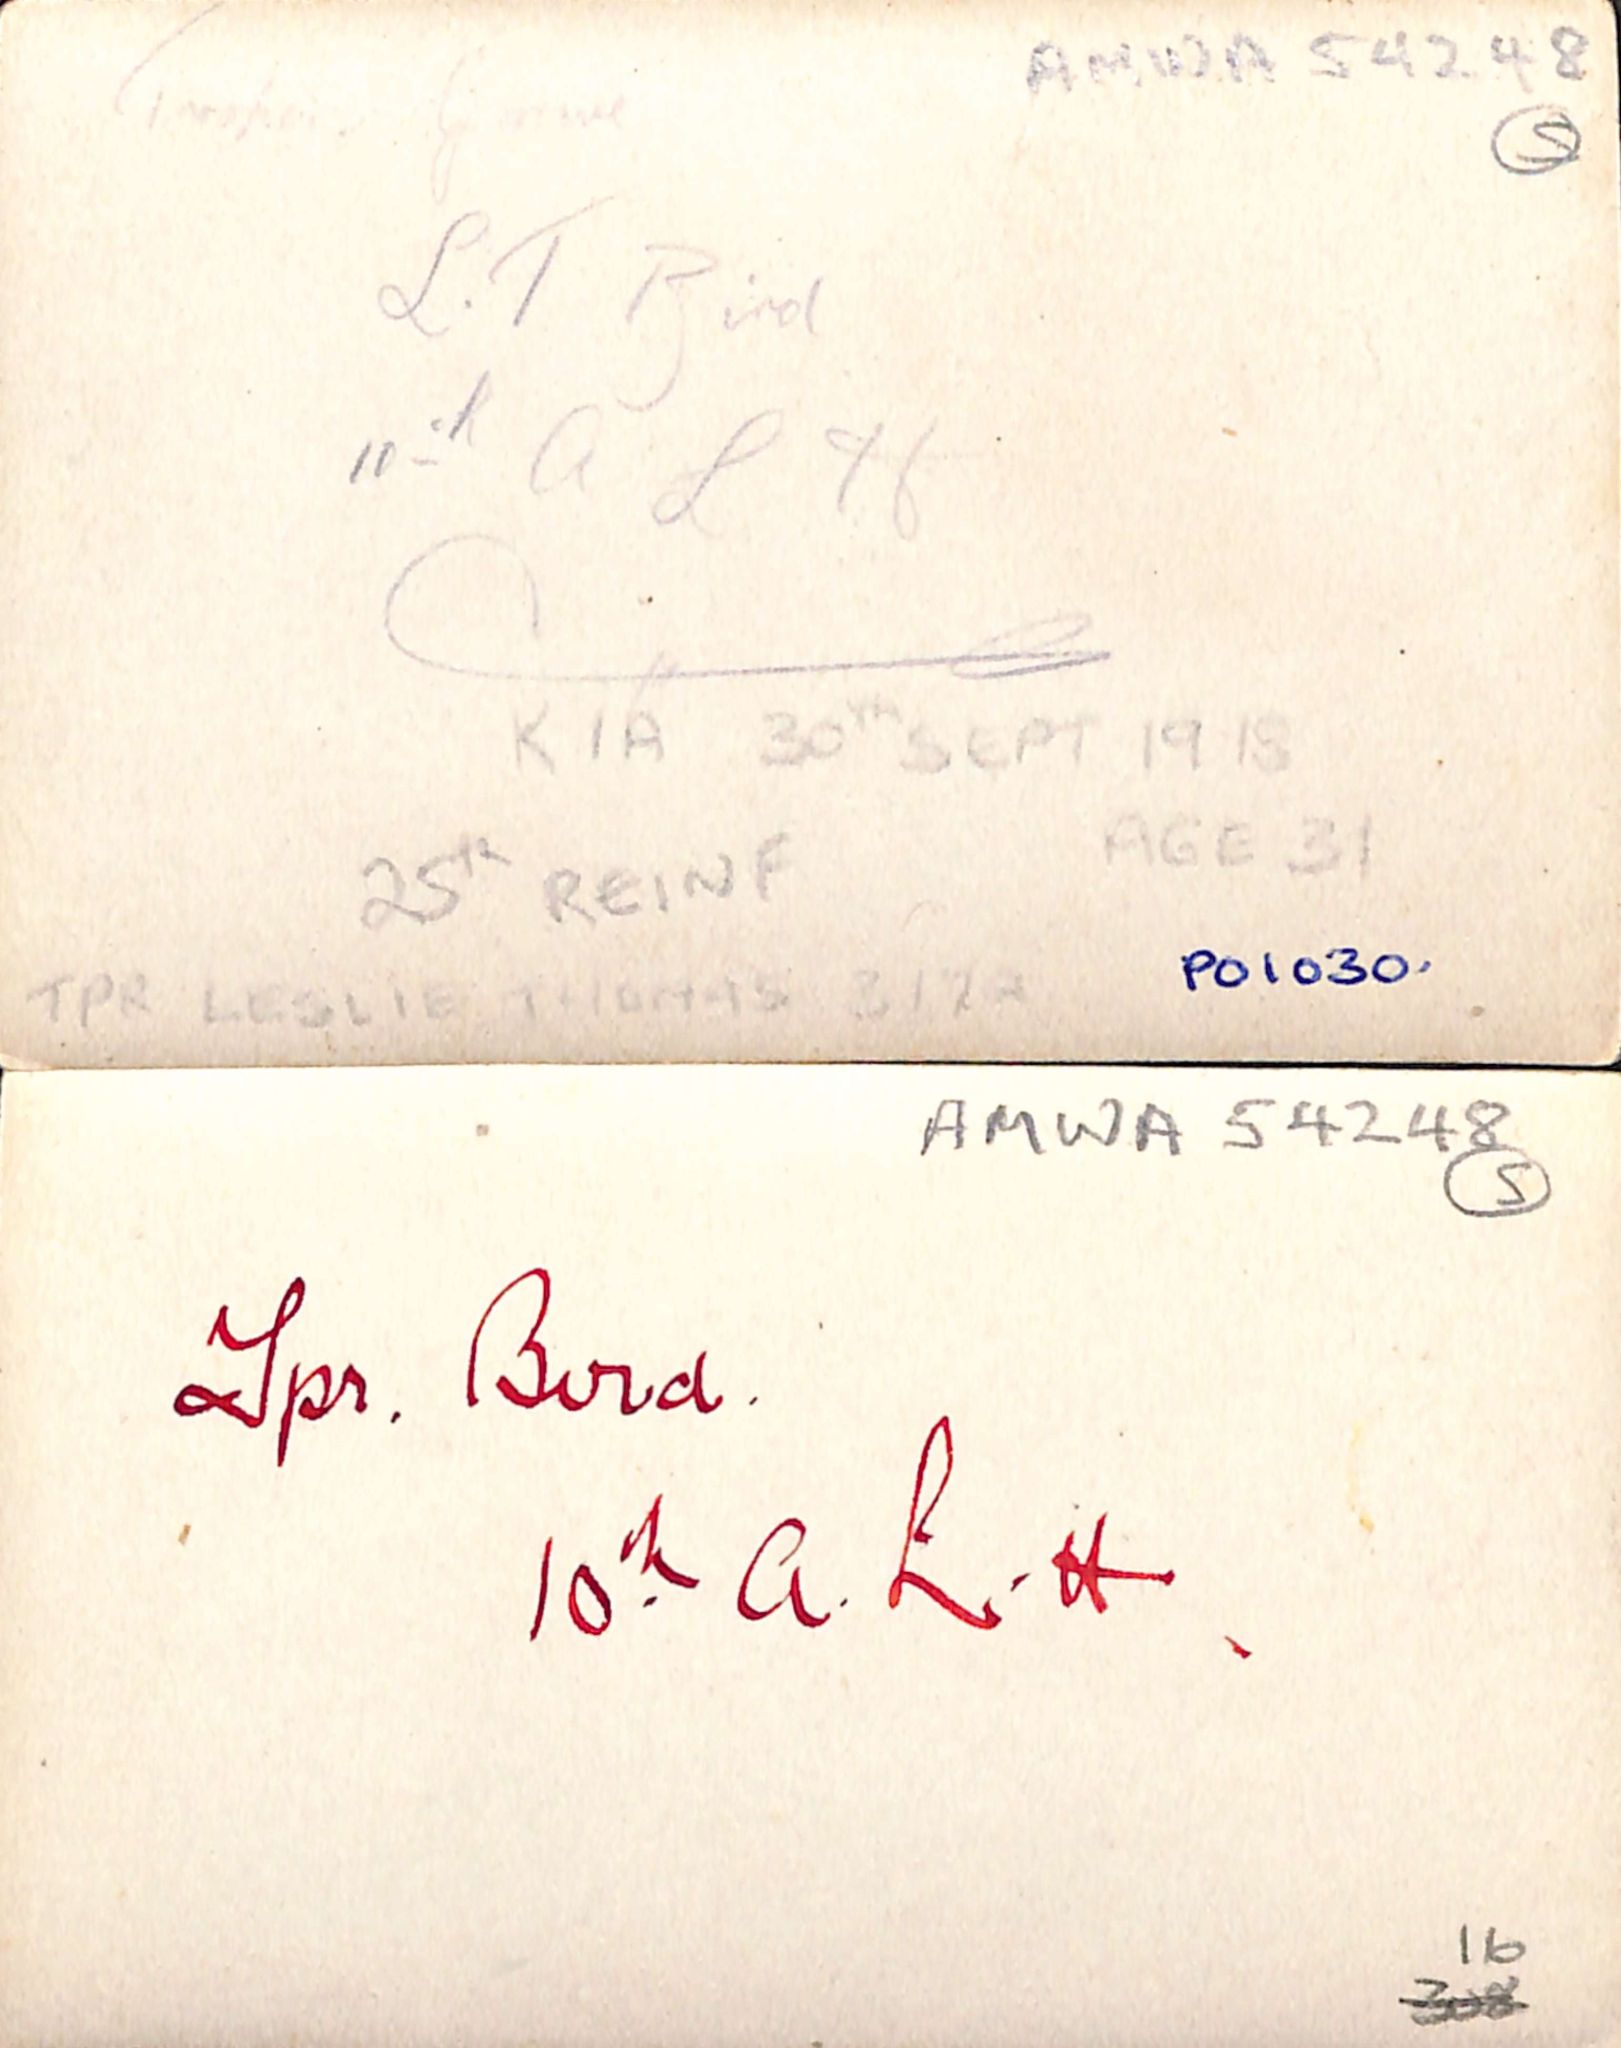 AMWA 54248
S
L.T Bird
10th A L H
KIA 30th SEPT 1918
AGE 31
25th REINF
P01030.
TPR LESLIE THOMAS
AMWA 54248
S
Tpr. Bird.
10th A. L. H.
16
308